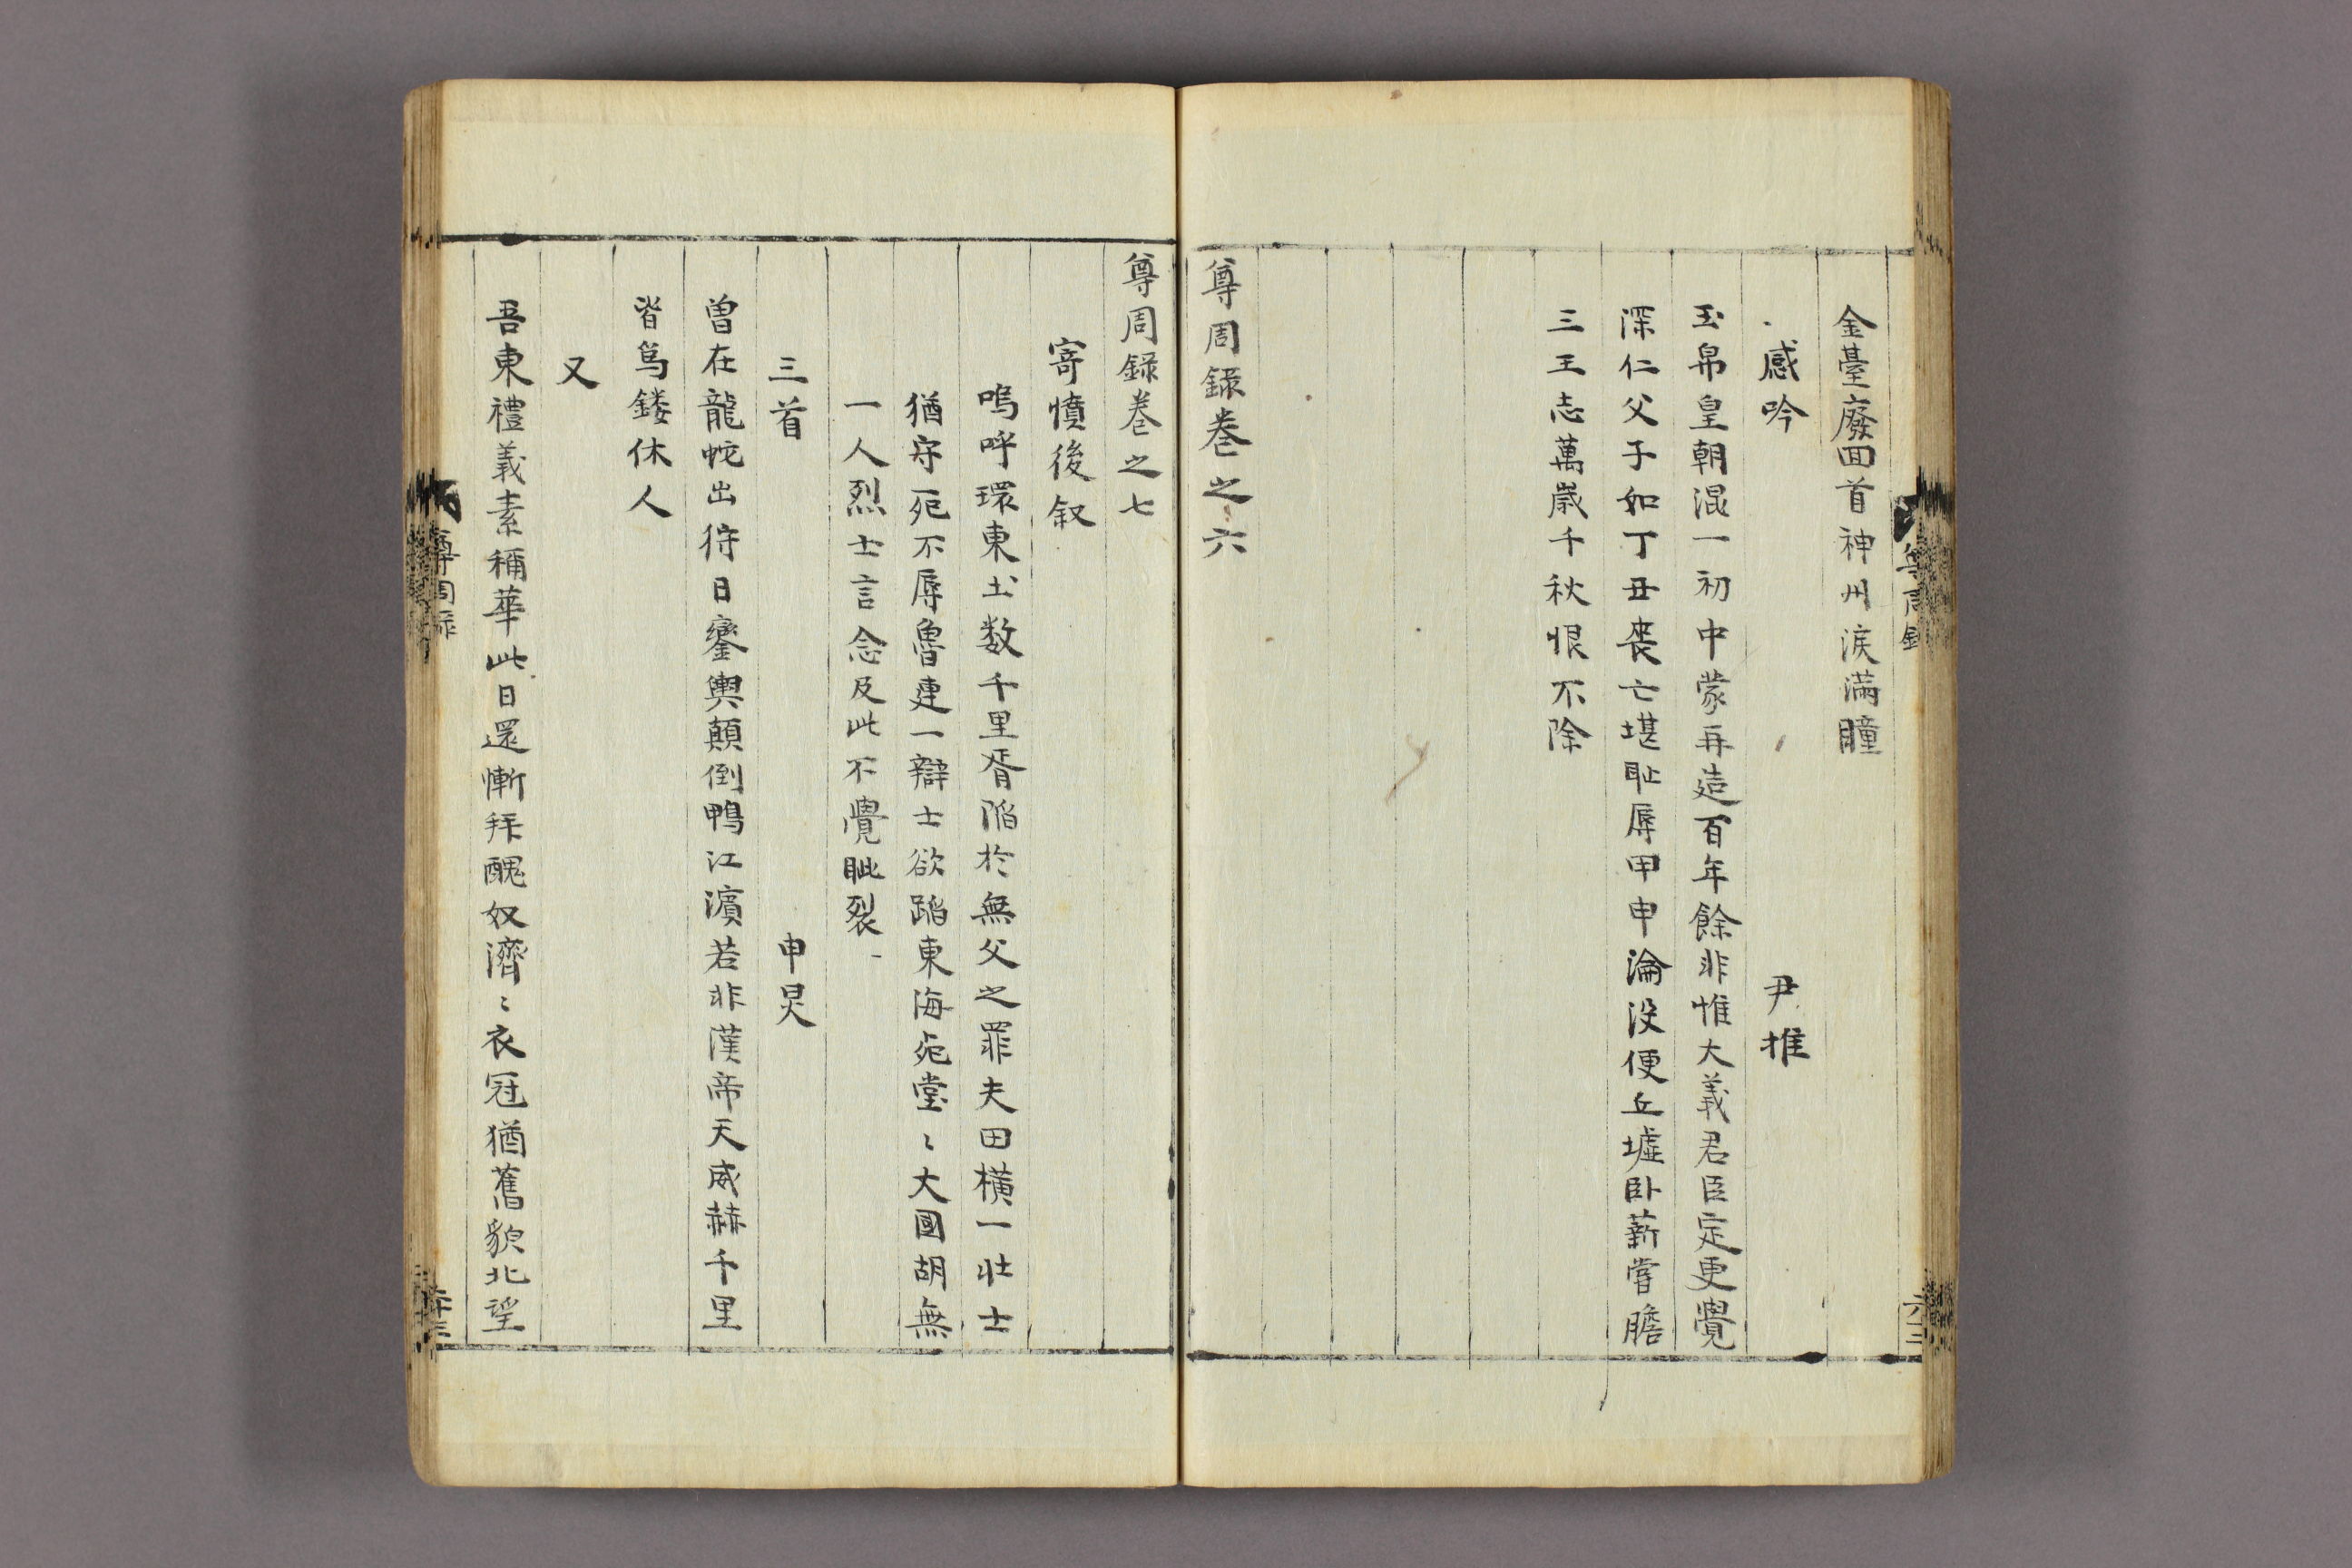 金臺廢回首神州淚滿瞳
感吟 尹推
玉帛皇朝混一初中蒙再造百年餘非惟大義君臣定更覺
深仁父子如丁丑喪亡堪耻辱甲申淪没便丘墟卧薪嘗膽
三王志萬歲千秋恨不除
尊周録卷之六
尊周録卷之七
寄憤後叙
嗚呼環東土数千里胥陷於無父之罪夫田橫一壮士
猶守死不辱魯連一辯士欲蹈東海死堂〻大國胡無
一人烈士言念及此不覺眦裂
三首 申炅
曽在龍蛇出狩日鑾輿顛倒鴨江濱若非漢帝天威赫千里
皆為鏤休人
又
吾東禮義素稱華此日還慚拜醜奴濟〻衣冠猶舊貌北望
尊周録